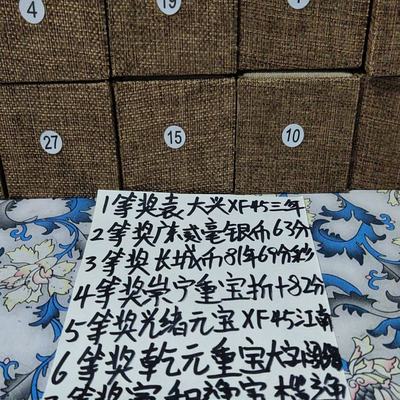 4
19
27
15
10
1等奖袁大头XF45三年
2等奖广东贰毫银币63分
3等奖长城币81年69分
4等奖崇宁重宝折十82分
5等奖光绪元宝XF45江南
6等奖乾元重宝大字